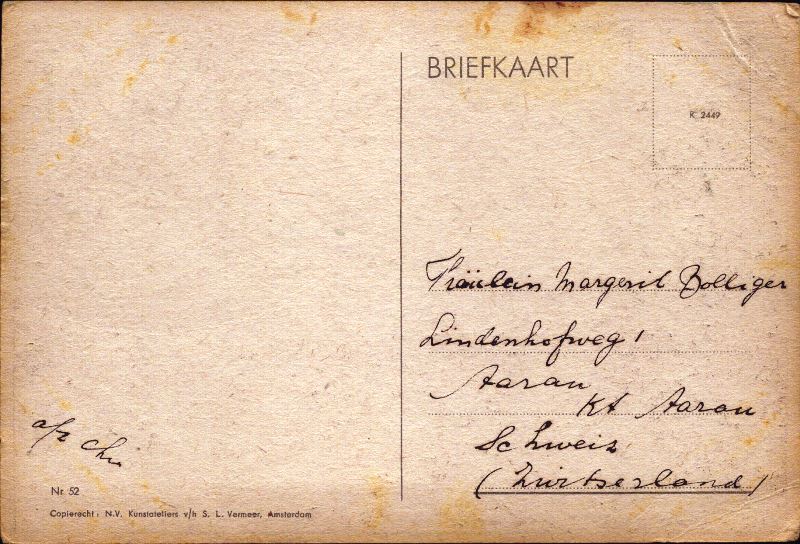 BRIEFKAART
K 2449
Fräulein Margerit Bolliger
Lindenhofweg 1
Aarau
Kt Aarau
Schweiz
(Zwitserland)
Nr 52
Copierecht: N.V. Kunstateliers v/h S. L. Vermeer, Amsterdam